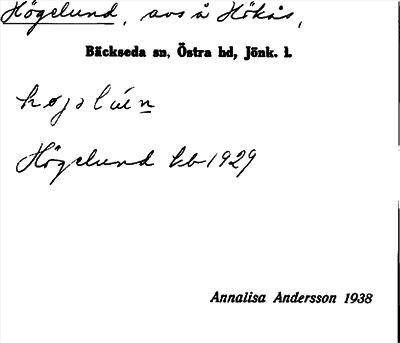 Högelund, avs å Hökås,
Bäckseda sn, Östra hd, Jönk. l.
Högelund kb 1929
Annalisa Andersson 1938